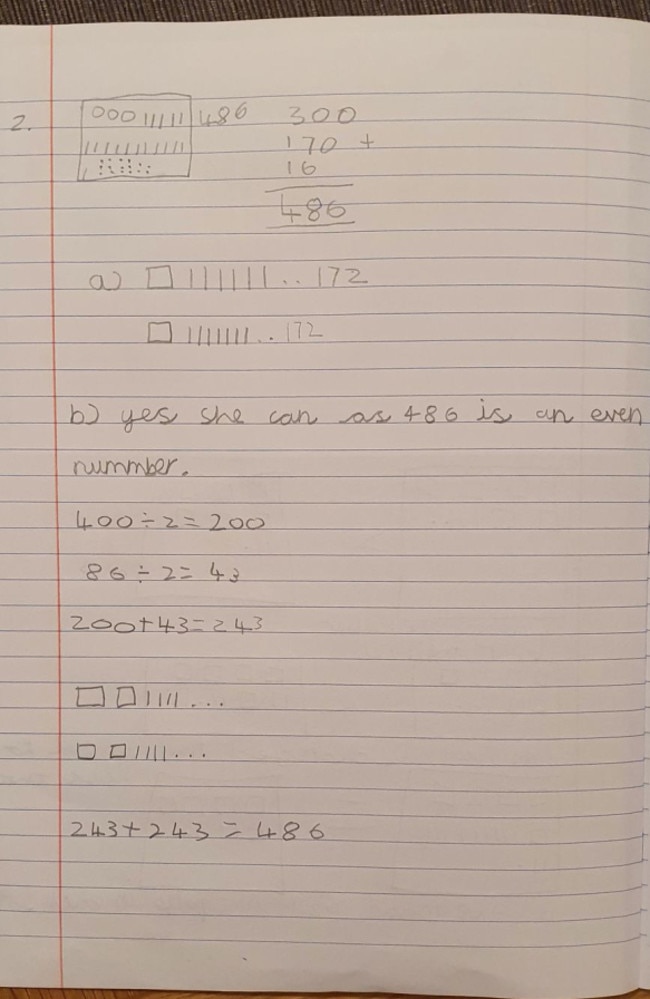 2. 000 11111 486 300
11111111111 170 +
16
486
a) □ | | | | | | | . . 172
□ | | | | | | | . . 172
b) yes she can as 486 is an even
nummber.
400 ÷ 2 = 200
86 ÷ 2 = 43
200 + 43 = 243
□ □ | | | | . . .
□ □ | | | | . . .
243 + 243 = 486